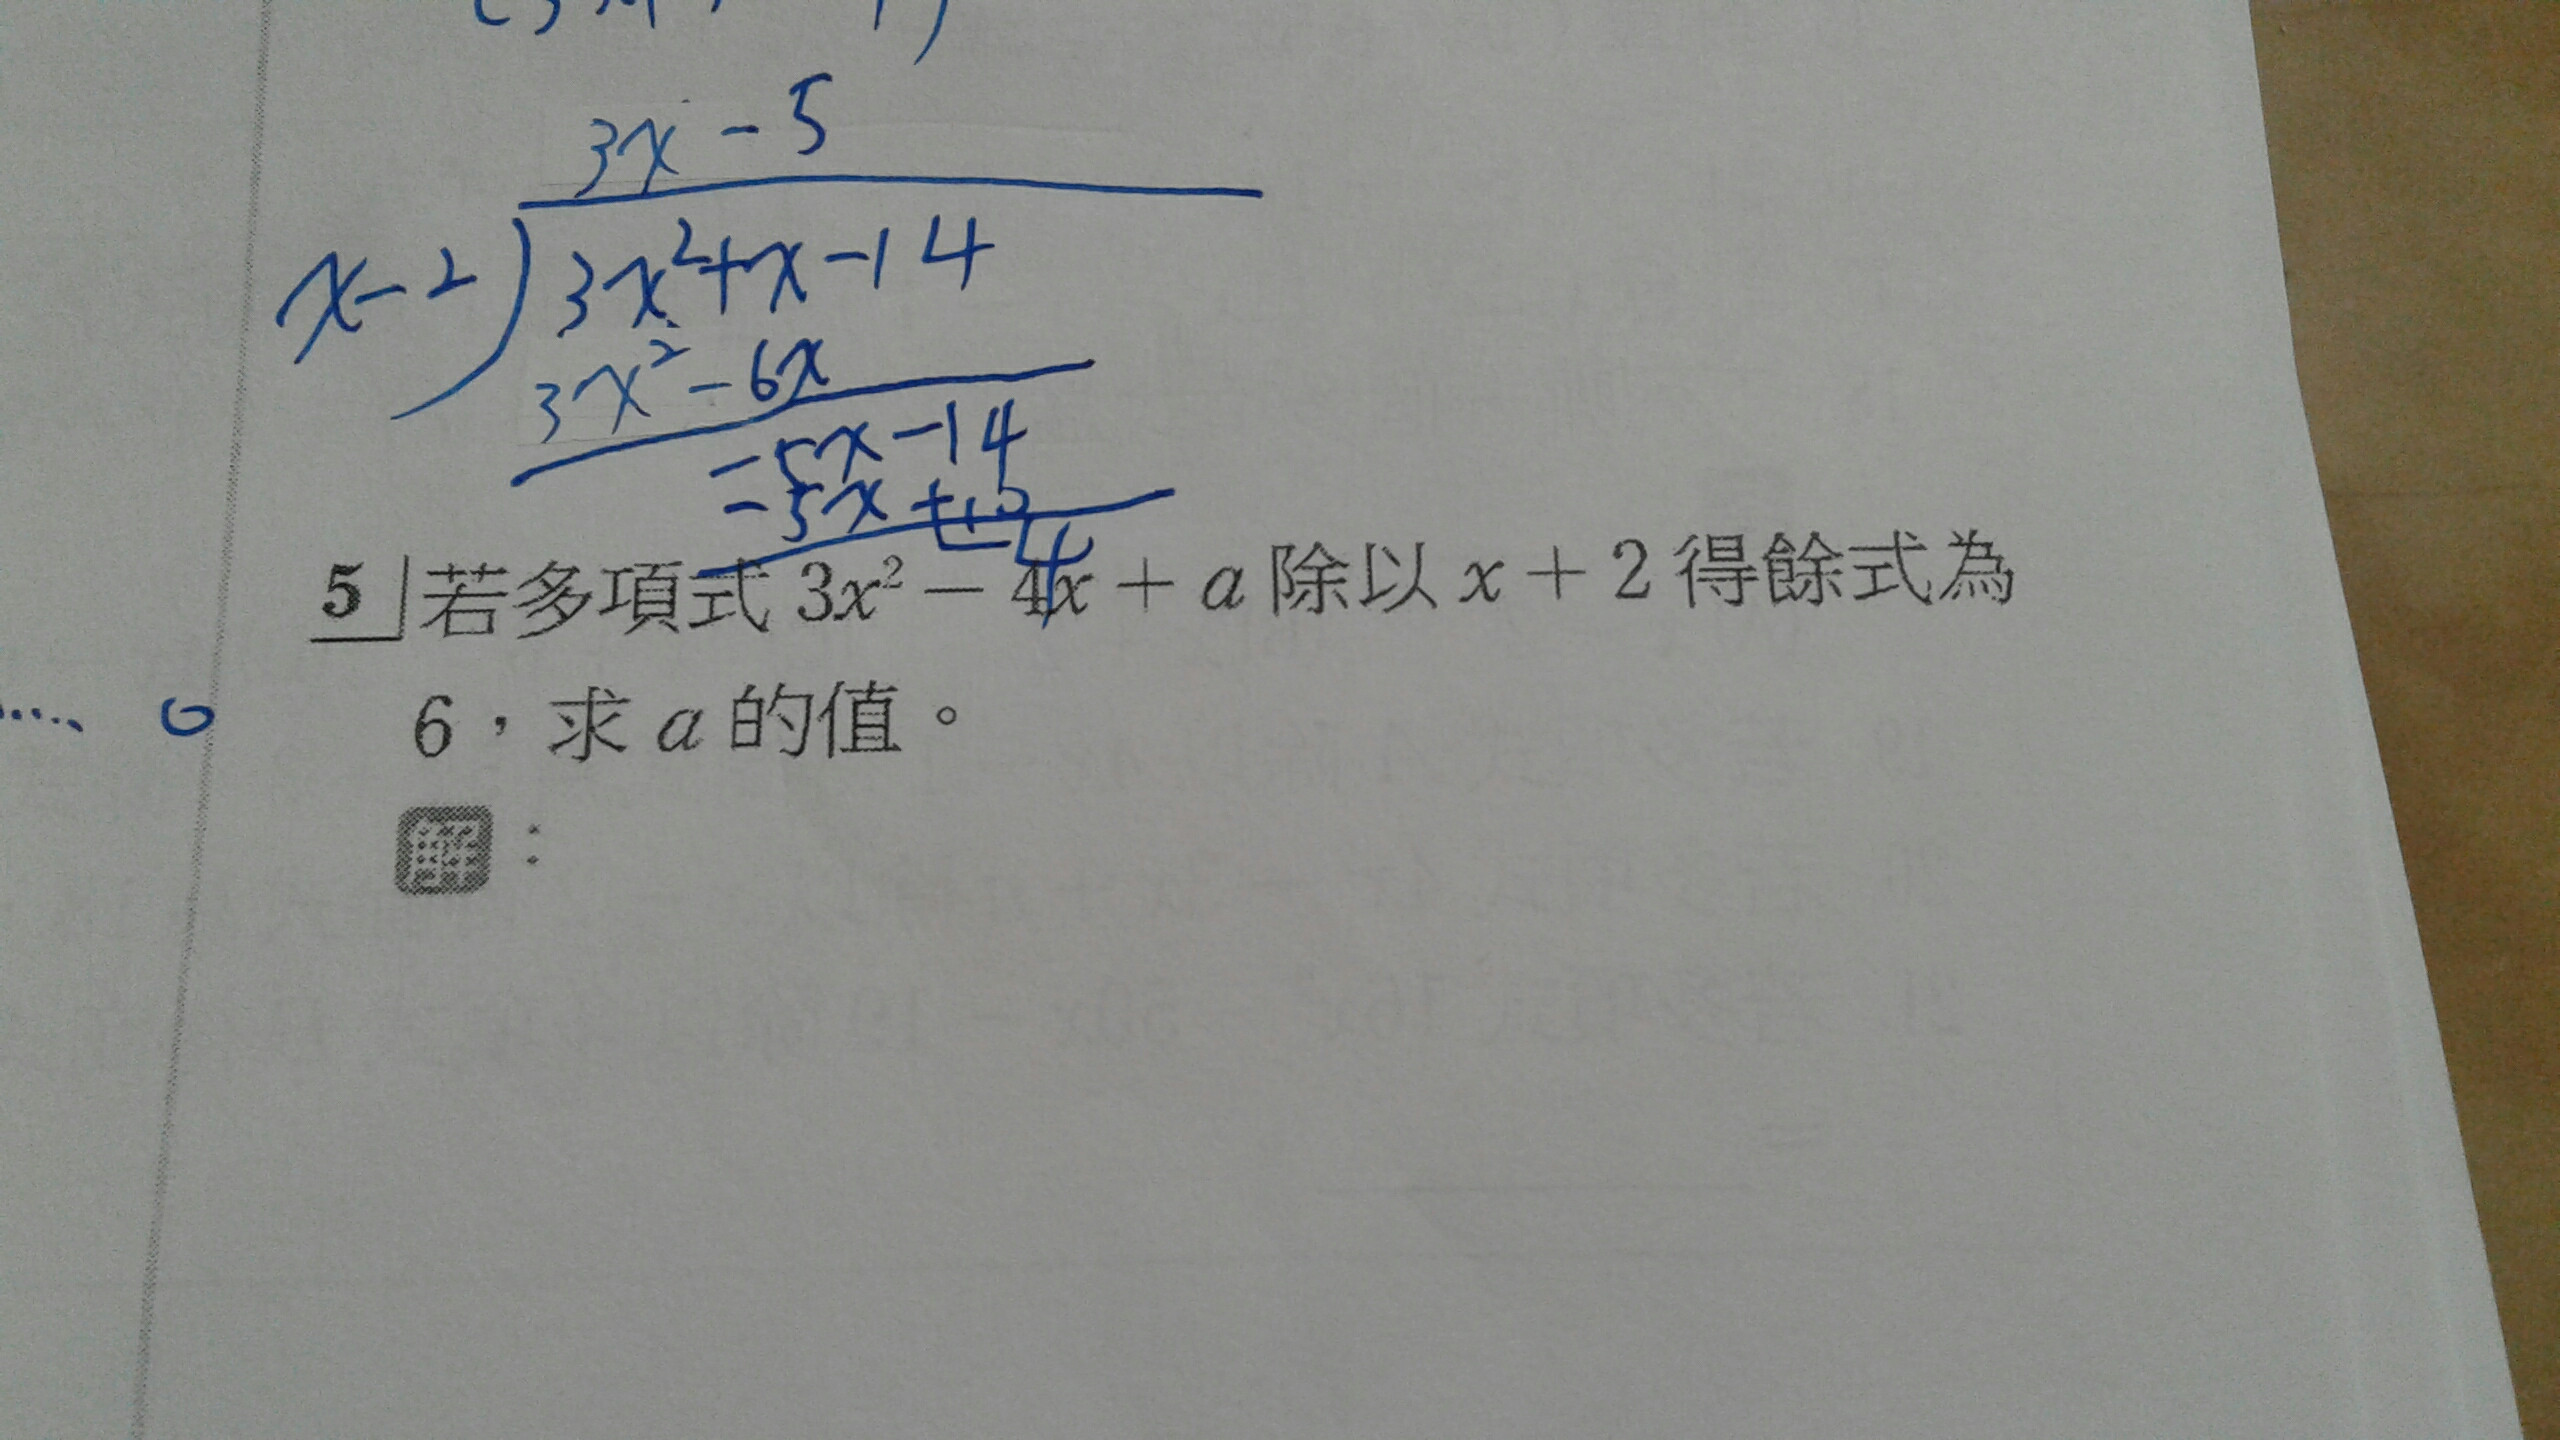 3x - 5
x-2 ) 3x²+x-14
3x² - 6x
-5x-14
-5x +10
-24
5 若多項式 3x² - 4x + a 除以 x + 2 得餘式為
6，求 a 的值。
解：